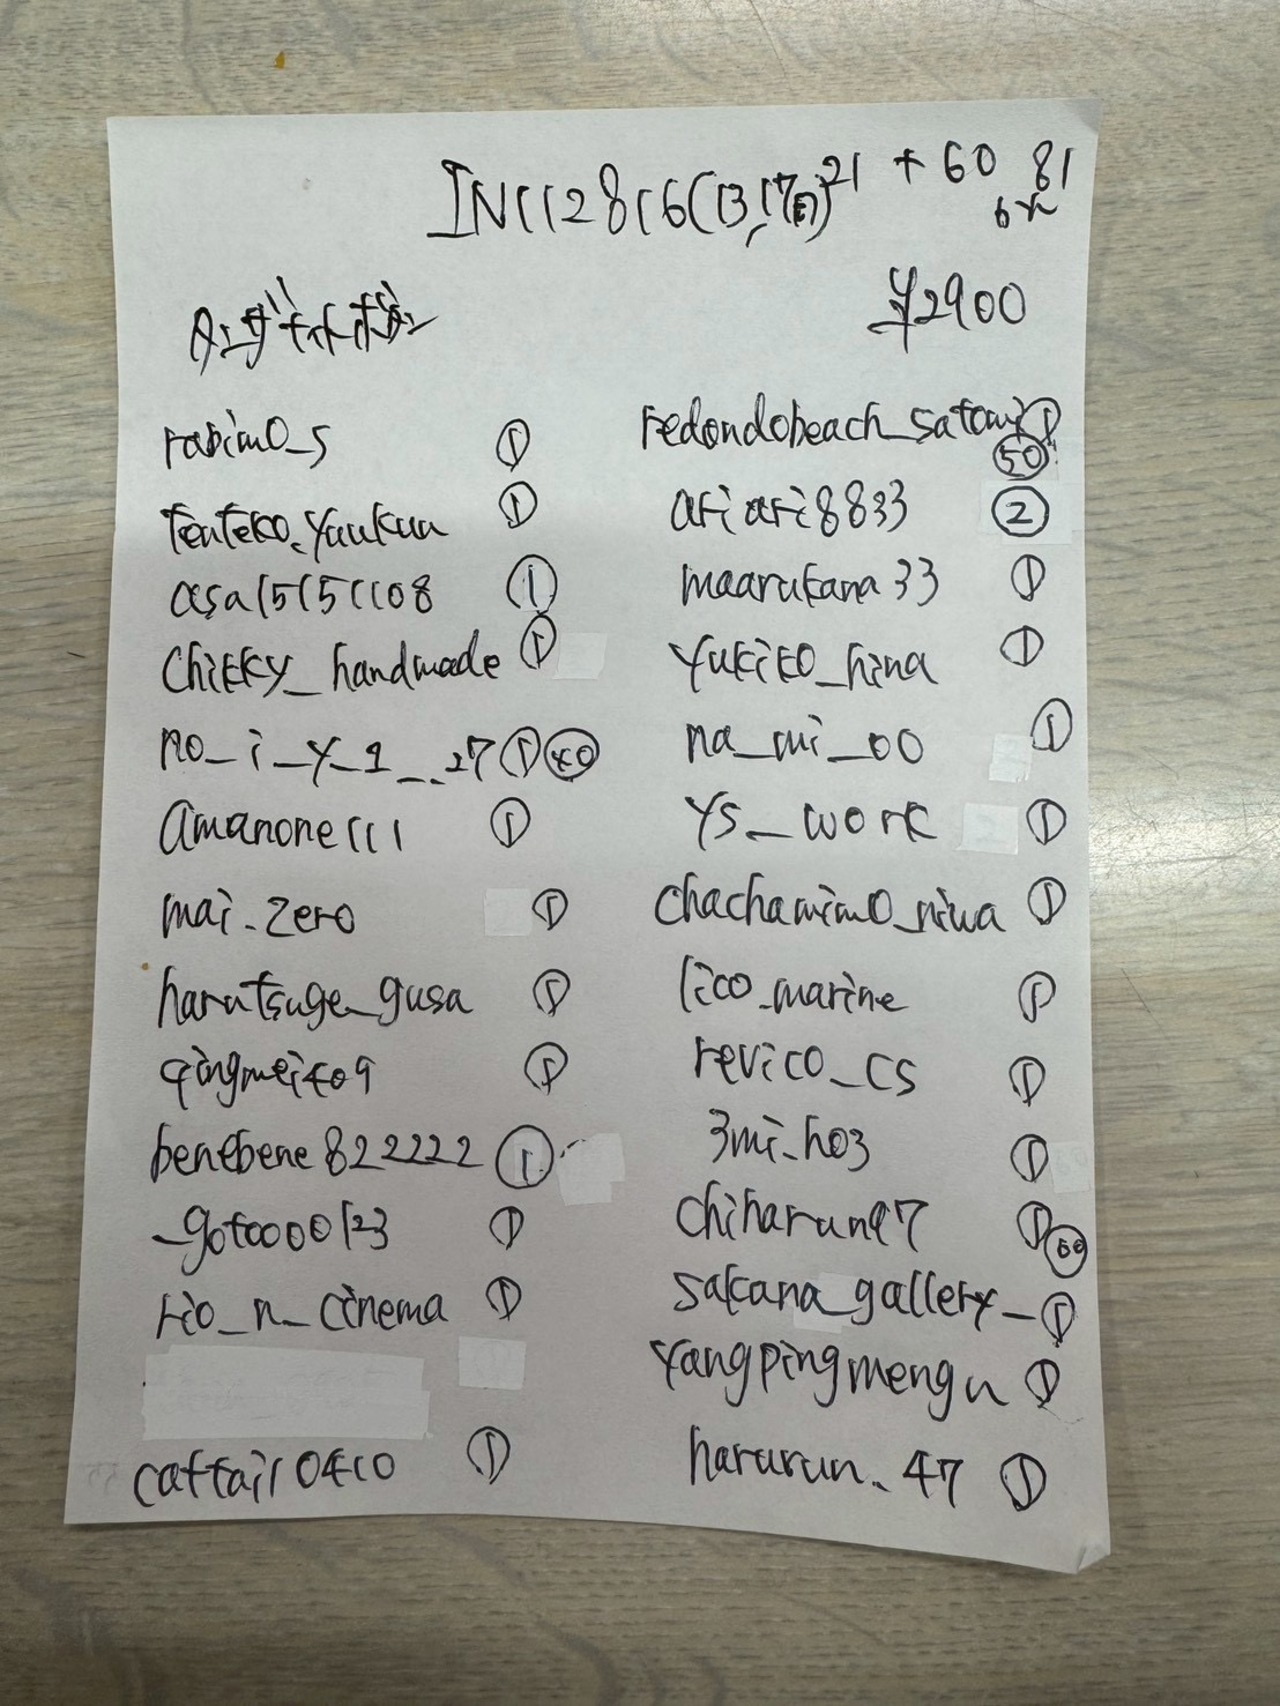 INCC2816(13,17日) 21 + 60 81
¥2900
rabim0_s ①
tenteko.yuukun ①
asa15151108 ①
chikky_handmade ①
no_i_y_1__.27 ① 40
amanone111 ①
mai.zero ①
harutsuge_gusa ①
qingmei409 ①
benebene822222 ①
_goto000123 ①
rio_n_cinema ①
cattail0410 ①
redondobeach_satomi ①
50
ariari8833 ②
maarukana33 ①
yukiko_hina ①
na_mi_00 ①
ys_work ①
chachamim0_niwa ①
lico_marine ①
revico_cs ①
3mi_ho3 ①
chiharun97 ① 60
sakana_gallery_ ①
yangpingmengu ①
harurun.47 ①